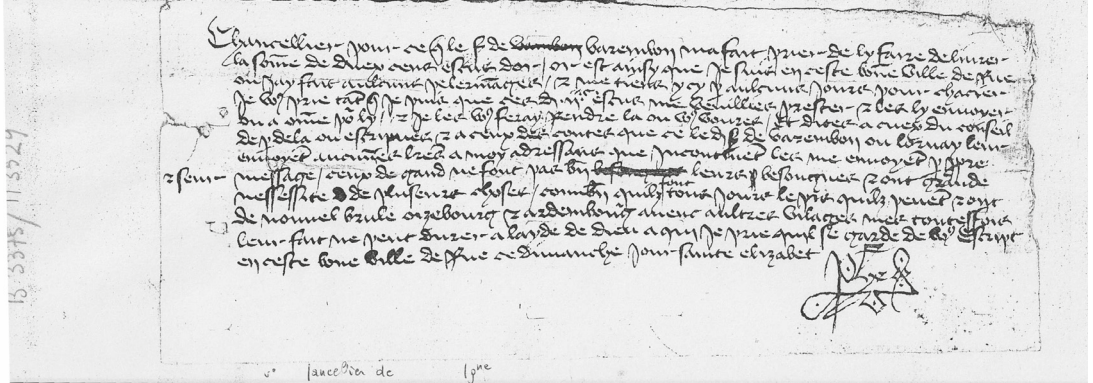 Chancellier pour ce q le s de varembon ma fait prier de ly faire delivrer
la some de deux cens escus dor / or est ainsy que je suis en ceste bone ville de Rue
ou jay fait aulcuns pelerinages / & me tiens ycy p aulcuns jours pour chacier
je vos prie tat q je puis que ces di escus me veulliés prester & les ly envoyer
ou a ome po ly / & je les vos feray rendre la ou vos voures / Et dites a ceux du conseil
de p dela ou escripves & a ceux des contes que ce le dit s de varembon ou lornay leur
envoyet aucunes lres a moy adressans que incontinet les me envoyet p pre
& seur message / ceux de gand ne font pas bn leurs besougnes & ont grande
nessessité de pluseurs choses / combn quilz font tous jours le pis quilz peuet & ont
de nouvel brulé oizebourg & ardembourg avenc aultres vilages mes toutesfois
leur fait ne peut durer a layde de dieu a qui je prie quil se garde de vos Escript
en ceste bone ville de Rue ce dimanche jour sainte elizabet
B 3375/113529